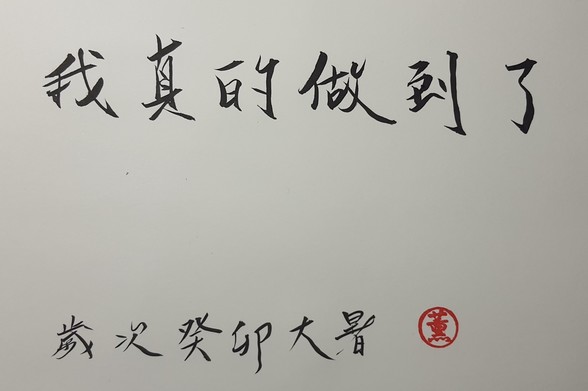 我真的做到了
歲次癸卯大暑
薰